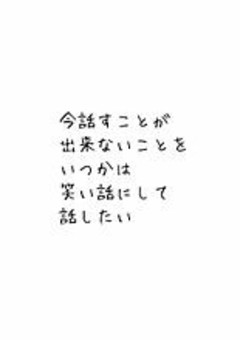 今話すことが
出来ないことを
いつかは
笑い話にして
話したい